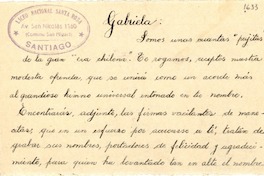 LICEO NACIONAL SANTA ROSA
SANTIAGO
1633
Gabriela:
Somos unas cuantas "pajitas"
de la gran "era chilena". Te rogamos, aceptes nuestra
modesta ofrenda, que se unirá como un acorde más
al grandioso himno universal entonado en tu nombre.
Encontrarás, adjunto, las firmas vacilantes de mana-
que en un esfuerzo por acercarse a ti, tratan de
grabar sus nombres, portadores de felicidad y agradeci-
miento, para quien ha levantado tan en alto el nombre